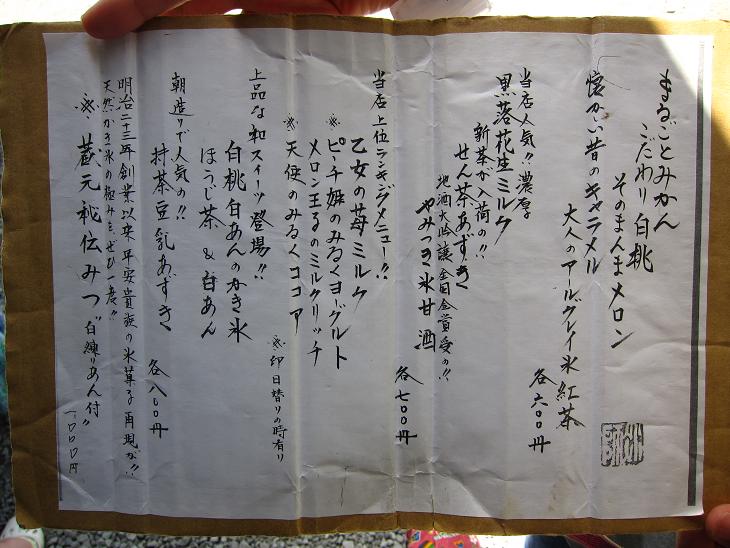 まるごとみかん
こだわり白桃
そのまんまメロン
懐かしい昔のキャラメル
大人のアールグレイ氷紅茶
各六〇〇円
当店人気!!濃厚
黒落花生ミルク
新茶が入荷の!!
せん茶あずき
地酒大吟醸全国金賞受の!!
やみつき氷甘酒
各七〇〇円
当店上位ランキングメニュー!!
乙女の苺ミルク
※ピーチ姫のみるくヨーグルト
メロン王子のミルクリッチ
※天使のみるくココア
※印日替りの時有り
上品な和スイーツ登場!!
白桃白あんのかき氷
ほうじ茶&白あん
朝造りで人気の!!
抹茶豆乳あずき
各八〇〇円
明治二十三年創業以来平安貴族の氷菓子再現が!!
天然かき氷の極みをぜひ一度!!
※蔵元秘伝みつ"白練りあん付"
一〇〇〇円